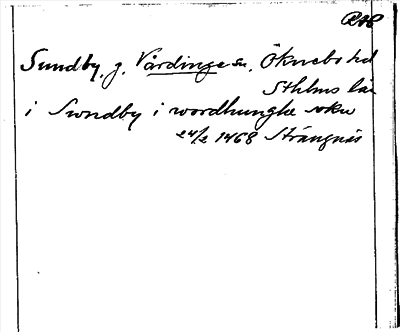 RAP
Sundby, g. Vårdinge sn. Öknebo hd
Sthlms län
i Swndby i wordhunghe sokn
24/2 1468 Strängnäs